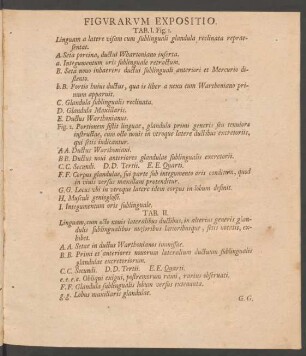 FIGVRARVM EXPOSITIO.
TAB. I. Fig. 1.
Linguam a latere visam cum sublinguali glandula reclinata repræ-
sentat.
A. Seta porcina, ductui Whartoniano inserta.
a. Integumentum oris sublinguale retractum.
B. Seta uno inhaerens ductui sublinguali anteriori et Mercurio di-
stento.
b.B. Portio huius ductus, qua is liber a nexu cum Warthoniano pri-
mum apparuit.
C. Glandula sublingualis reclinata.
D. Glandula Maxillaris.
E. Ductus Warthonianus.
Fig. 2. Portionem sistit linguae, glandula primi generis seu tenuiore
instructae, cum octo mutis in utroque latere ductibus excretoriis,
qui setis indicantur.
A A. Ductus Warthoniani.
B B. Ductus noui anteriores glandulae sublingualis excretorii.
C.C. Secundi. D.D. Tertii. E.E. Quarti.
F.F. Corpus glandulae, sua parte sub integumento oris conditum, quod
in viuis versus maxillam protenditur.
G.G. Locus vbi in utroque latere idem corpus in lobum desinit.
H. Musculi genioglossi.
I. Integumentum oris sublinguale.
TAB. II.
Linguam, cum octo nouis lateralibus ductibus, in alterius generis glandulis
sublingualibus maioribus latioribusque, setis intentis, ex-
hibet.
A.A. Setae in ductus Warthonianos immissae.
B.B. Primi et anteriores nouorum lateralium ductuum sublingualis
glandulae excretoriorum.
C.C. Secundi. D.D. Tertii. E.E. Quarti.
e.e.e.e. Obliqui exigui, postremorum rami, rarius obseruati.
F.F. Glandula sublingualis lobum versus extenuata.
g.g. Lobus maxillaris glandulae.
G.G.